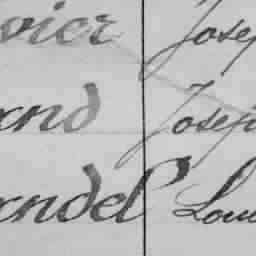 vier Josep
and Josep
andel Lou